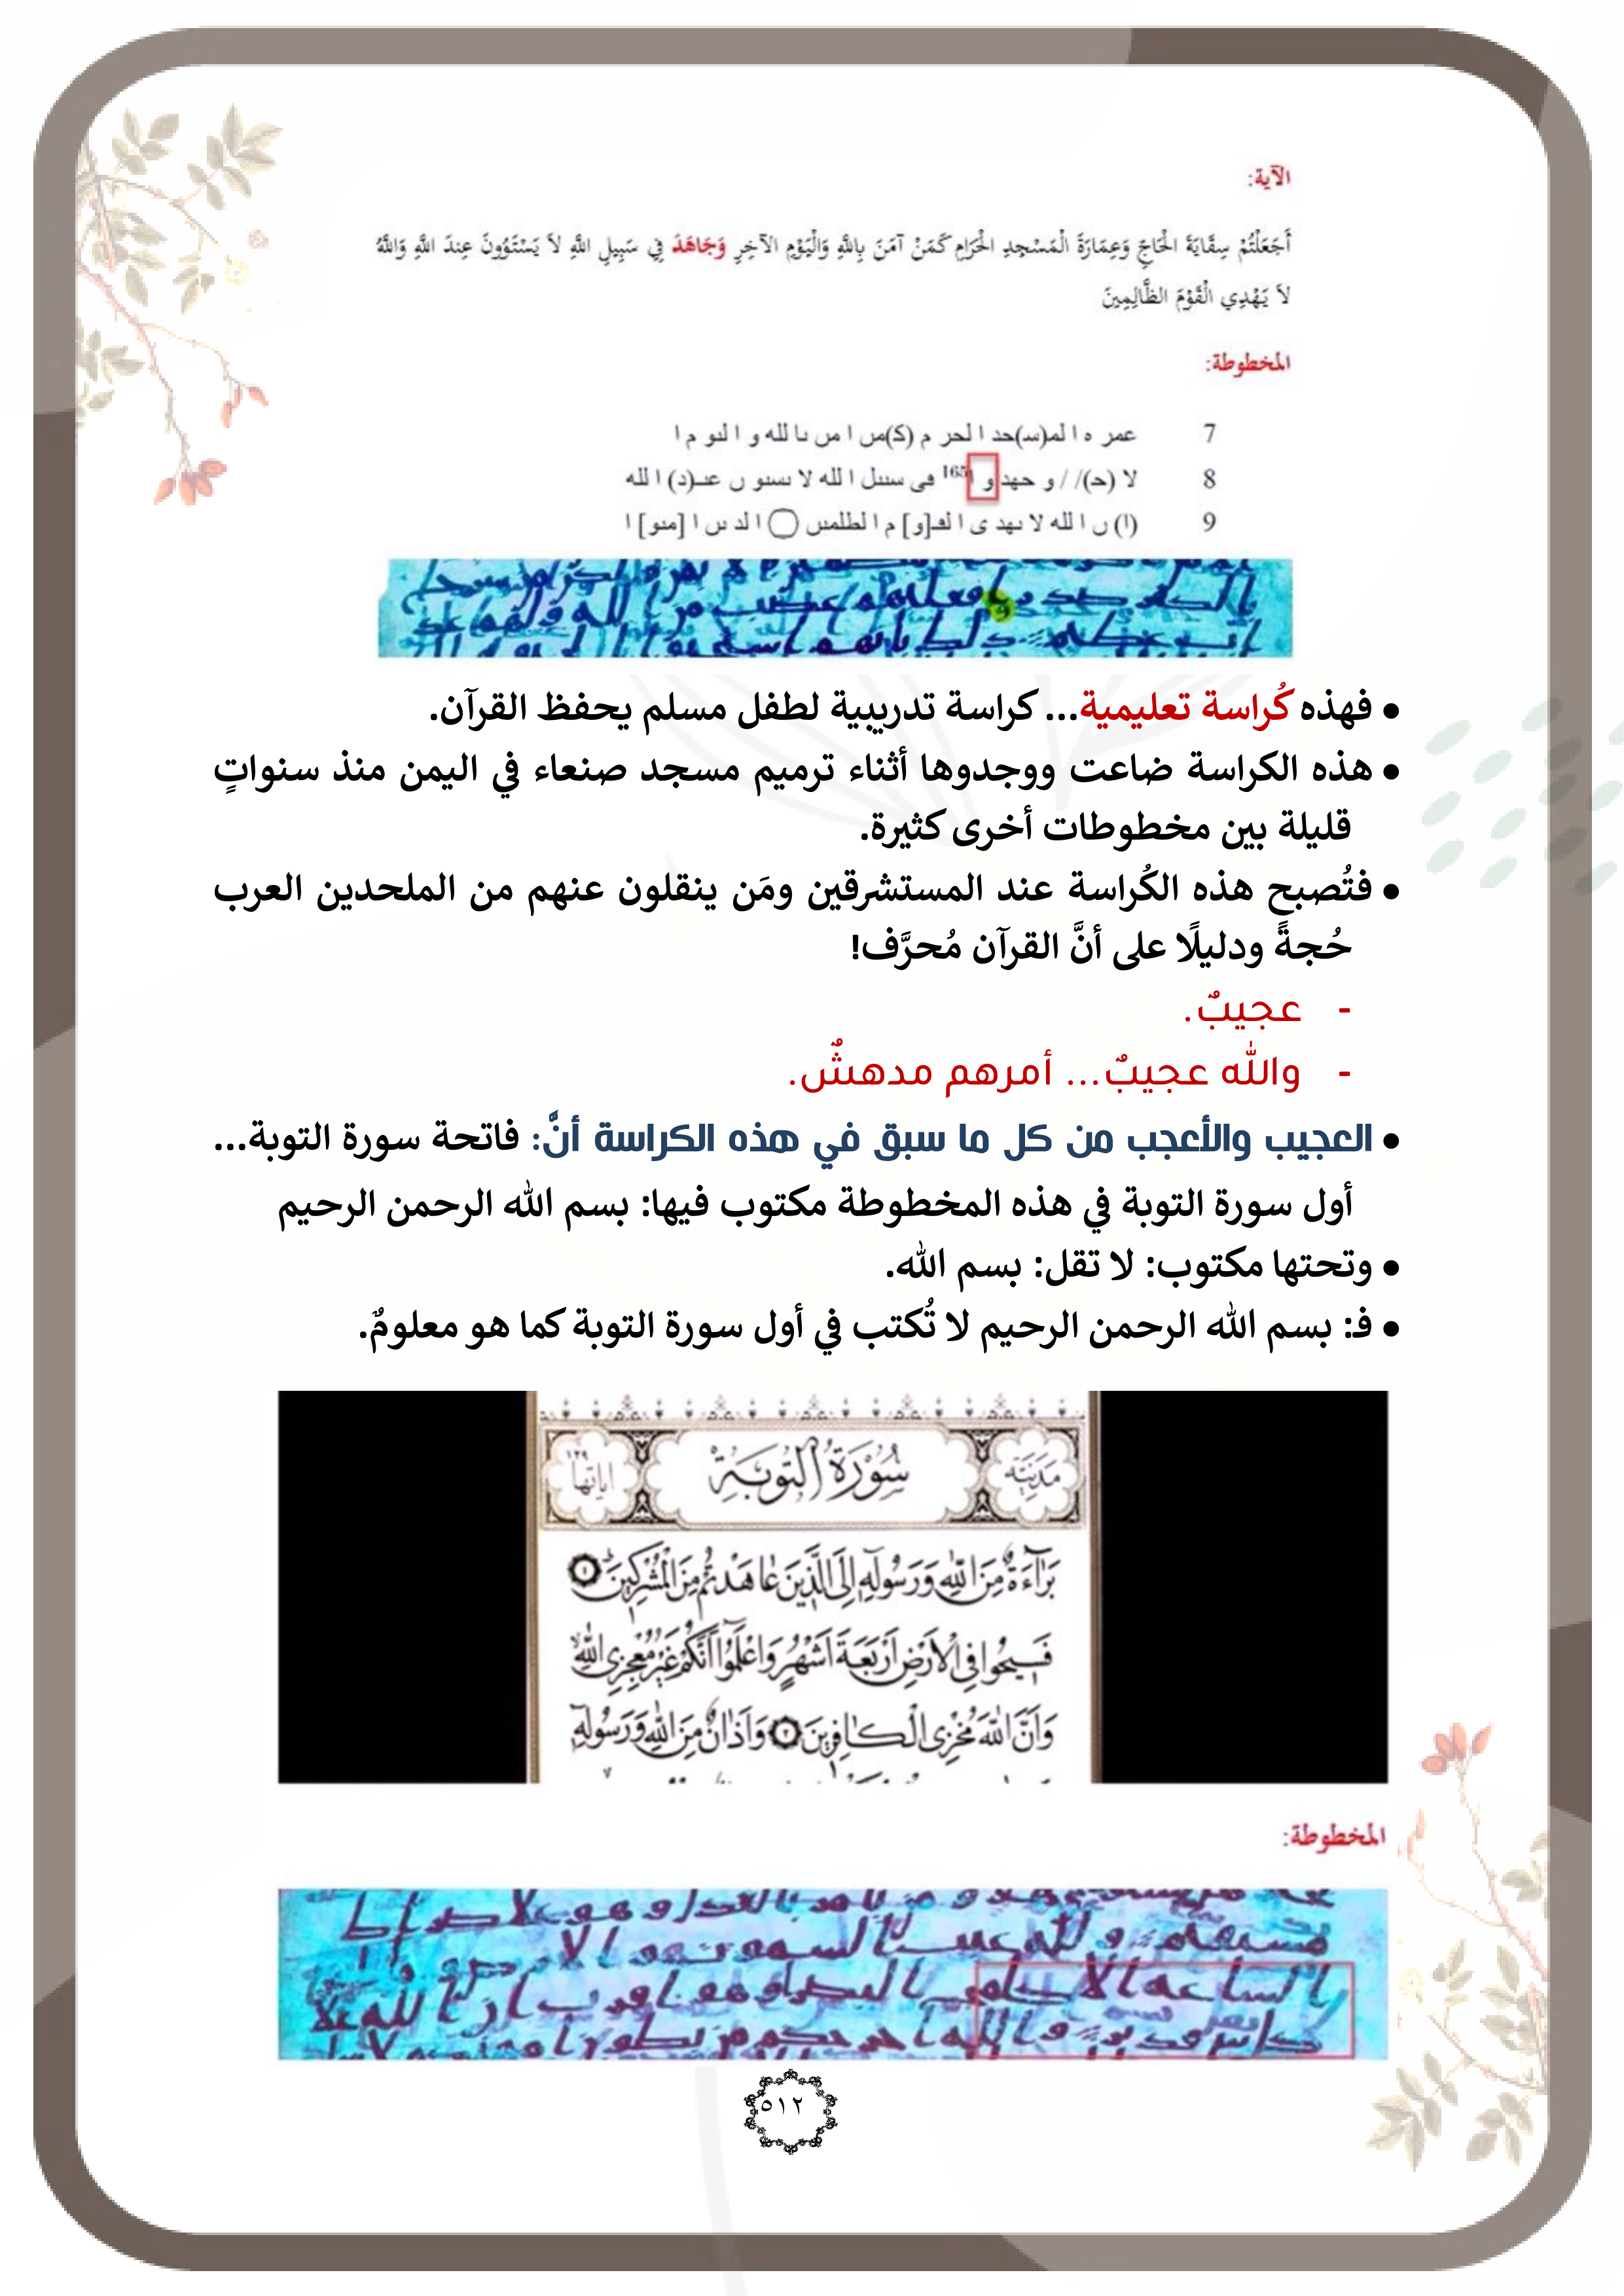 الآية:
أَجَعَلْتُمْ سِقَايَةَ الْحَاجِّ وَعِمَارَةَ الْمَسْجِدِ الْحَرَامِ كَمَنْ آمَنَ بِاللَّهِ وَالْيَوْمِ الآخِرِ وَجَاهَدَ فِي سَبِيلِ اللَّهِ لاَ يَسْتَوُونَ عِندَ اللَّهِ وَاللَّهُ
لاَ يَهْدِي الْقَوْمَ الظَّالِمِينَ
المخطوطة:
7 عمر ه ا لمـ(ســ)حد ا لحر م (كـ)مں ا مں ىا لله و ا لىو م ا
8 لا (حـ)/ / و حهد و ا 165 فى سىىل ا لله لا ىسىو ں عىـ(د) ا لله
9 (ا) ں ا لله لا ىهد ى ا لڡـ[و] م ا لطلمىں ○ ا لد ىں ا [مىو] ا
• فهذه كُراسة تعليمية... كراسة تدريبية لطفل مسلم يحفظ القرآن.
• هذه الكراسة ضاعت ووجدوها أثناء ترميم مسجد صنعاء في اليمن منذ سنواتٍ
قليلة بين مخطوطات أخرى كثيرة.
• فتُصبح هذه الكُراسة عند المستشرقين ومَن ينقلون عنهم من الملحدين العرب
حُجةً ودليلًا على أنَّ القرآن مُحرَّف!
- عجيبٌ.
- والله عجيبٌ... أمرهم مدهشٌ.
• العجيب والأعجب من كل ما سبق في هذه الكراسة أنَّ: فاتحة سورة التوبة...
أول سورة التوبة في هذه المخطوطة مكتوب فيها: بسم الله الرحمن الرحيم
• وتحتها مكتوب: لا تقل: بسم الله.
• فـ: بسم الله الرحمن الرحيم لا تُكتب في أول سورة التوبة كما هو معلومٌ.
مَدَنِيَّة سُورَةُ التَّوبَةِ اياتها ١٢٩
بَرَآءَةٌ مِنَ اللّٰهِ وَرَسُولِهٖٓ اِلَى الَّذٖينَ عَاهَدْتُمْ مِنَ الْمُشْرِكٖينَ ١
فَسٖيحُوا فِى الْاَرْضِ اَرْبَعَةَ اَشْهُرٍ وَاعْلَمُٓوا اَنَّكُمْ غَيْرُ مُعْجِزِى اللّٰهِ
وَاَنَّ اللّٰهَ مُخْزِى الْكَافِرٖينَ ٢ وَاَذَانٌ مِنَ اللّٰهِ وَرَسُولِهٖٓ
المخطوطة:
٥١٢